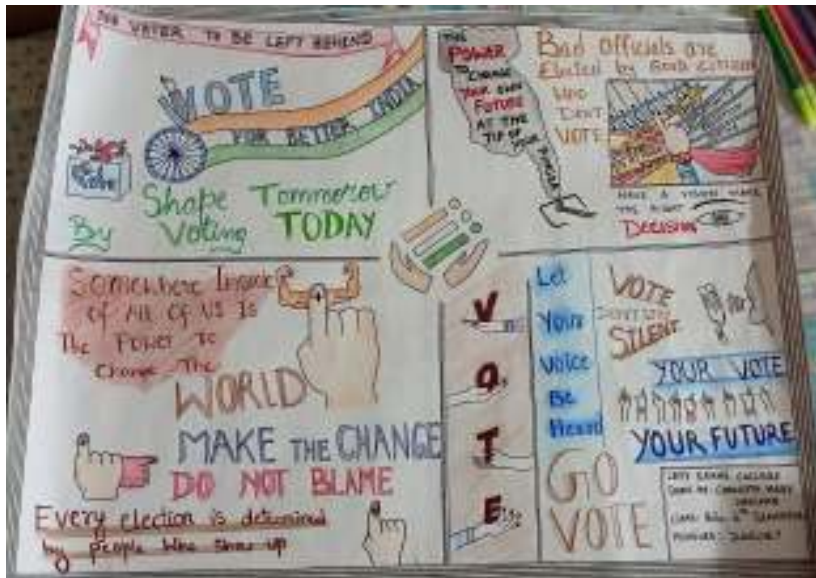 VOTER TO BE LEFT BEHIND
VOTE
FOR BETTER INDIA
Vote
Shape Tommorow
By Voting TODAY
THE
POWER
TO CHANGE
YOUR OWN
FUTURE
AT THE
TIP OF
YOUR FINGER
Bad Officials are
Elected by Good Citizen
Who
Dont
VOTE
HAVE A VISION MAKE
THE RIGHT
DECISION
Somewhere Inside
of All of Us Is
The Power To
Change The
WORLD
MAKE THE CHANGE
DO NOT BLAME
Every election is determined
by people who show up
V
O
T
E
Let
Your
Voice
Be
Heard
GO
VOTE
VOTE
DON'T STAY
SILENT
YOUR VOTE
YOUR FUTURE